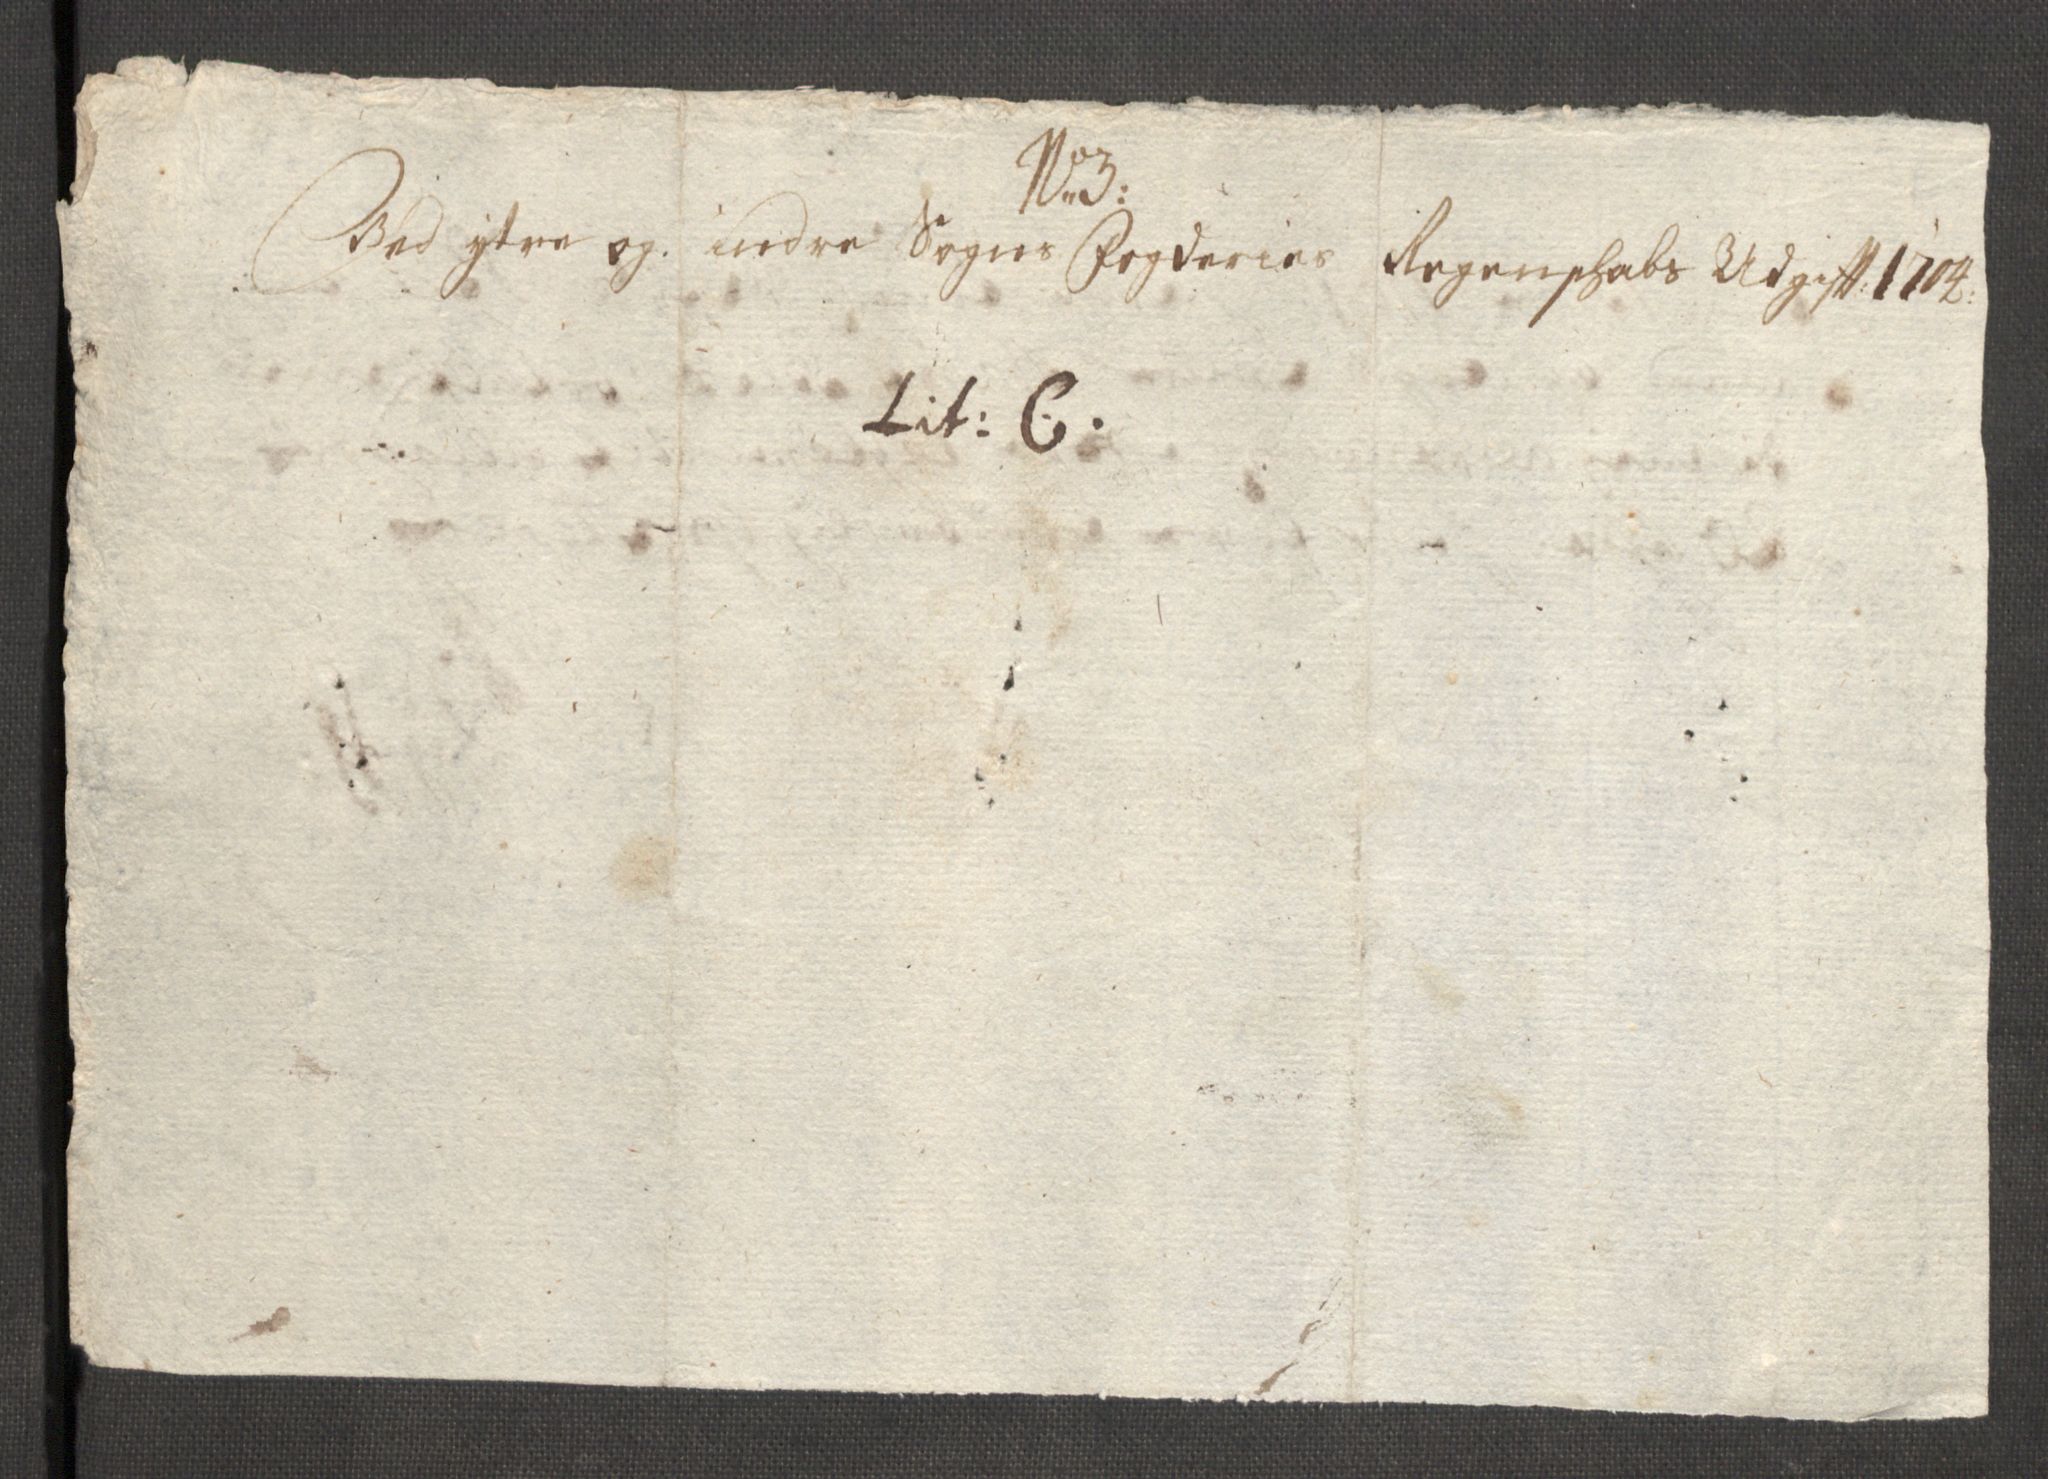 No 3:
Ved ytre og indre Sogns Fogderies Regenschabs Udgifft: 1704:
Lit: C.